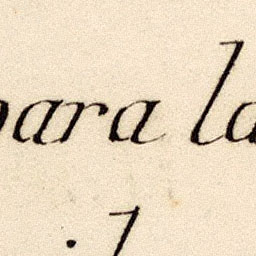 para la